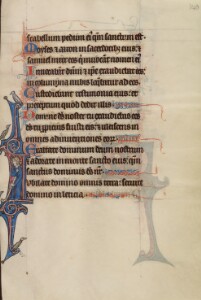 scabellum pedum eius qm sanctum est
Moyses z aaron in sacerdotib; eius z
samuel inter eos qui inuocant nomen ei
Inuocabant dnm z ipse exaudiebat eos
Custodiebant testimonia eius et
preceptum quod dedit illis
Domine ds noster tu exaudiebas eos
fuisti eis z ulciscens in
omnes adinuentiones eor
Exaltate dominum deum nostrum
z adorate in monte sancto eius qm
sanctus dominus ds nr
Iubilate domino omnis terra seruite
domino in leticia